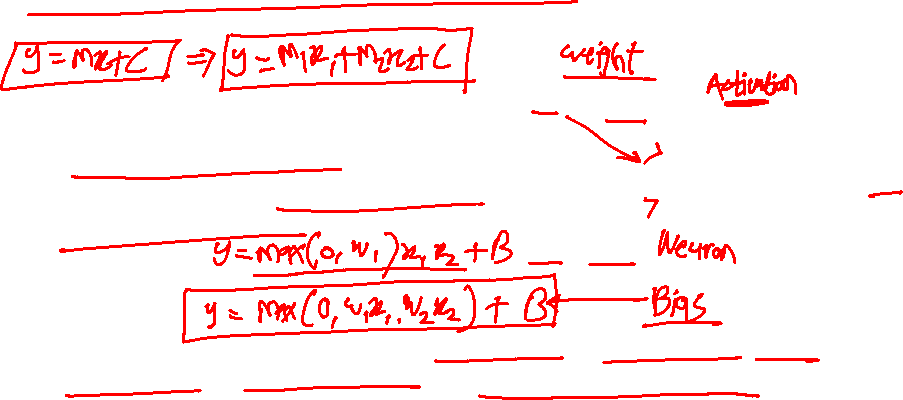 y=mx+c ⇒ y=m₁x₁+m₂x₂+c weight
Activation
y=max(0, w₁)x₁ x₂ +B Neuron
y= max(0, w₁x₁, w₂x₂) + B Bias